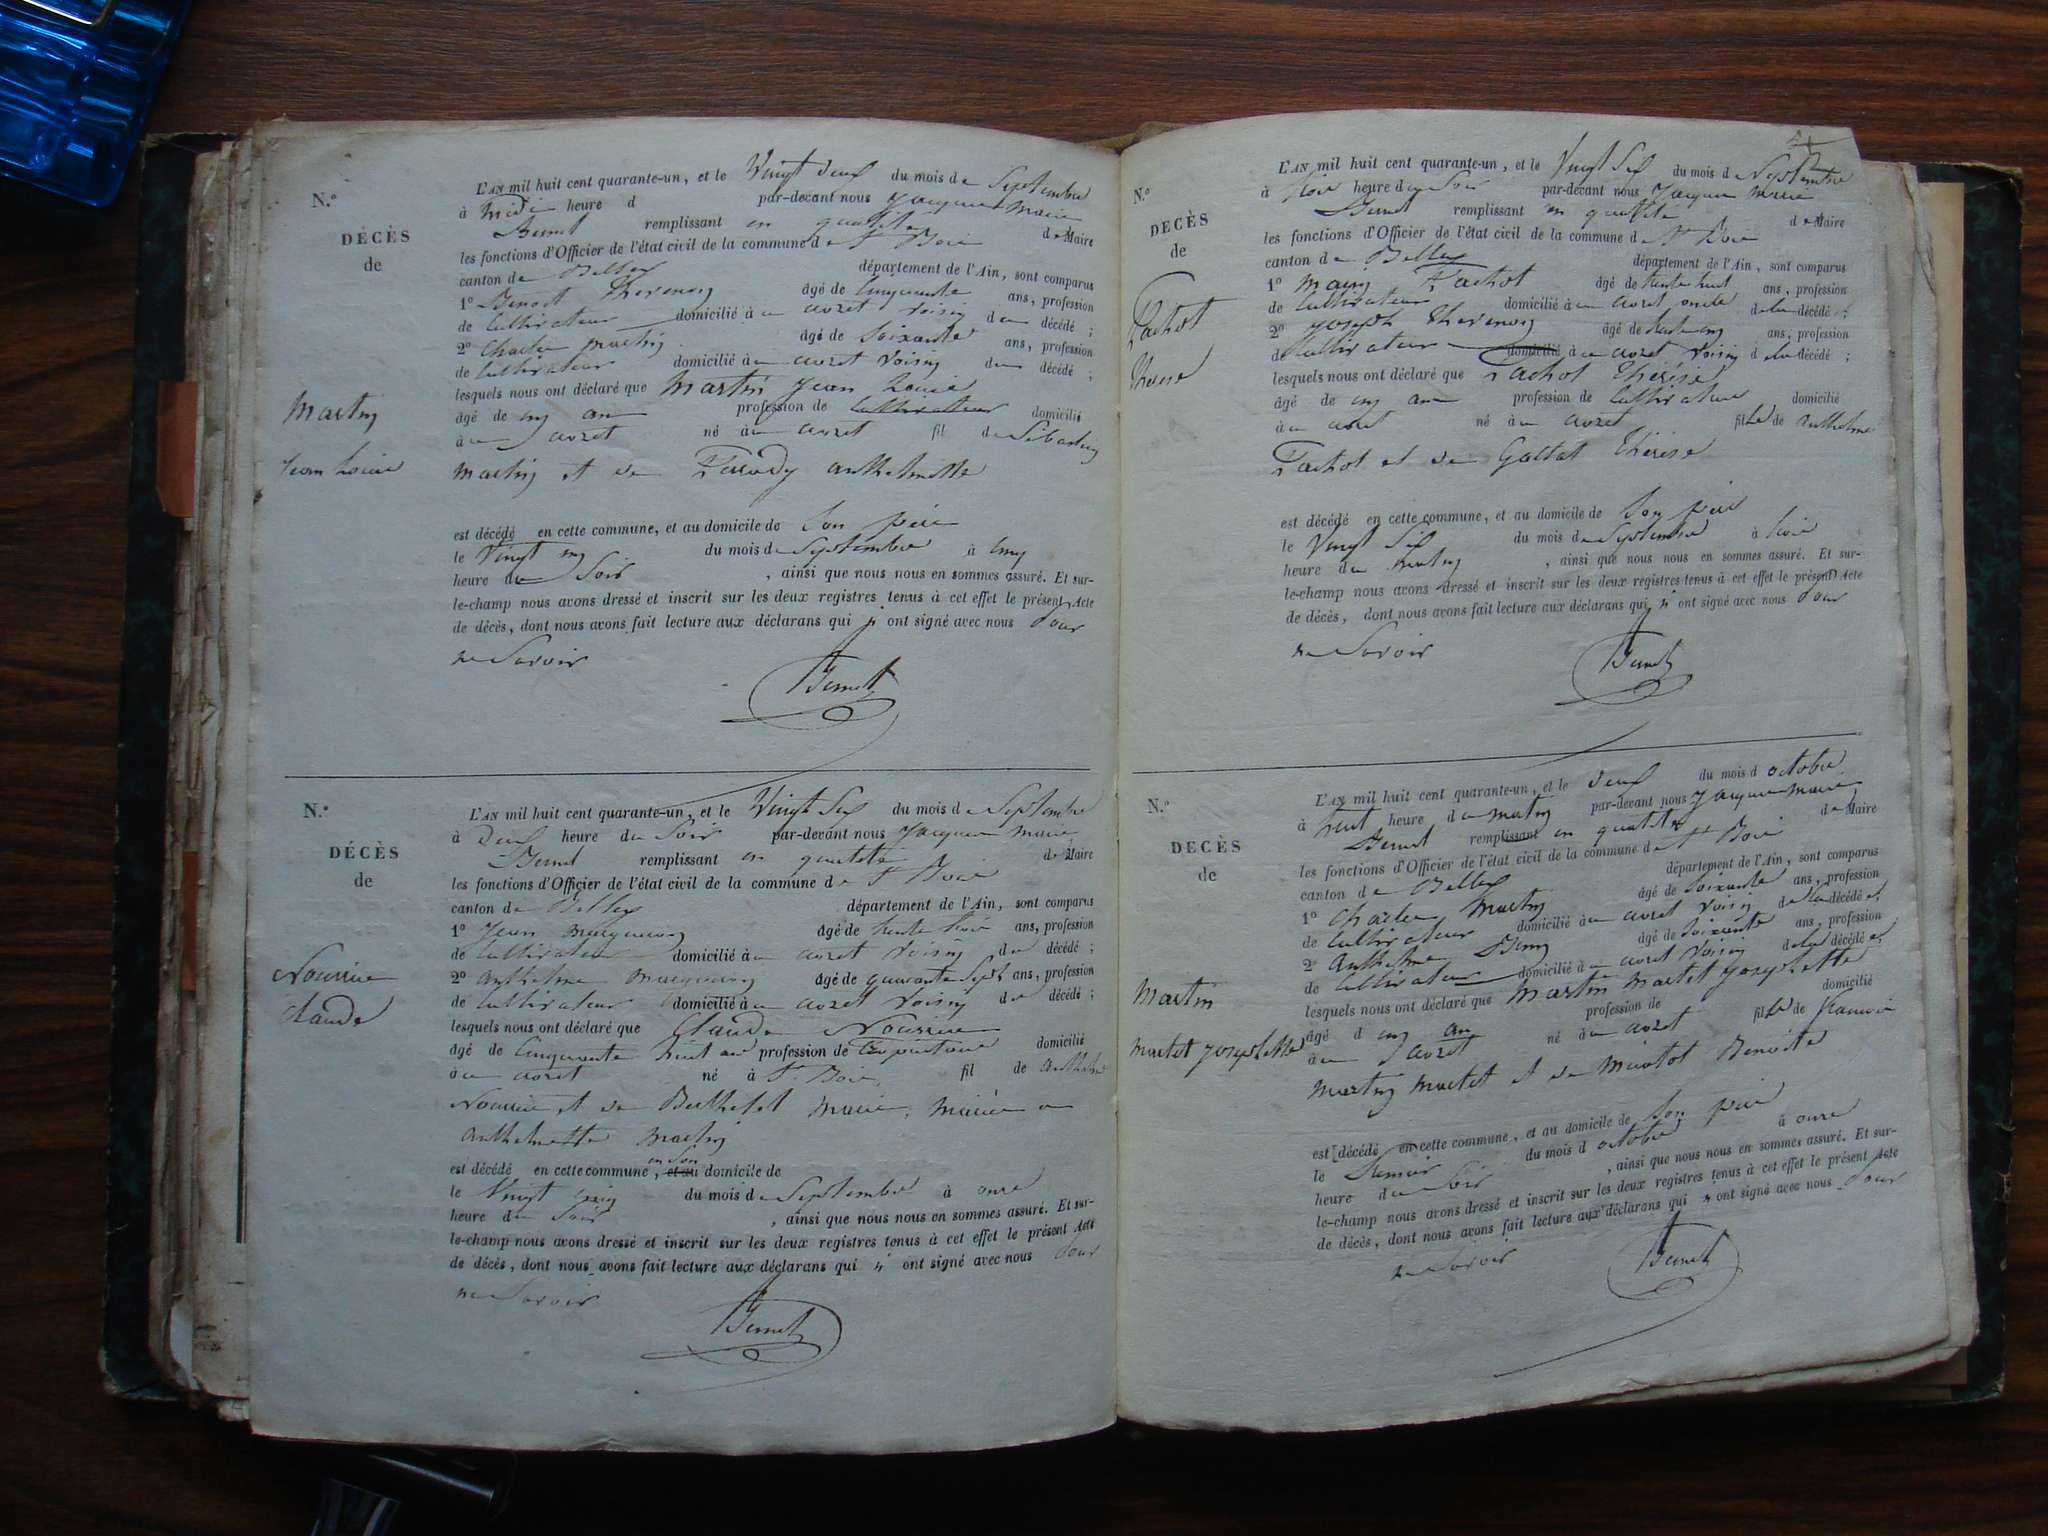 N.º
DÉCÈS
de
Martin
Jean Louis
L'AN mil huit cent quarante-un, et le Vingt deux du mois de Septembre
à Midi heure d par-devant nous Jacques Marie
remplissant en qualité de Maire
les fonctions d'Officier de l'état civil de la commune de St Bois
canton de Belley département de l'Ain, sont comparus
1º Benoit Thevenon âgé de Cinquante ans, profession
de Cultivateur domicilié à avzet voisin du décédé ;
2º Charles Martin âgé de Soixante ans, profession
de Cultivateur domicilié à avzet Voisin du décédé ;
lesquels nous ont déclaré que Martin Jean Louis
âgé de an profession de Cultivateur domicilié
à avzet né à avzet fil de Sébastien
Martin et de anthelmette
est décédé en cette commune, et au domicile de Son père
le Vingt un du mois de Septembre à Cinq
heure du Soir , ainsi que nous nous en sommes assuré. Et sur-
le-champ nous avons dressé et inscrit sur les deux registres tenus à cet effet le présent Acte
de décès, dont nous avons fait lecture aux déclarans qui n ont signé avec nous Pour
ne Savoir
N.º
DÉCÈS
de
Claude
L'AN mil huit cent quarante-un, et le Vingt Six du mois de Septembre
à Deux heure du Soir par-devant nous Jacques Marie
remplissant en qualité de Maire
les fonctions d'Officier de l'état civil de la commune de St Bois
canton de Belley département de l'Ain, sont comparus
1º Jean âgé de trente trois ans, profession
de Cultivateur domicilié à avzet Voisin du décédé ;
2º Anthelme âgé de quarante Sept ans, profession
de Cultivateur domicilié à avzet Voisin du décédé ;
lesquels nous ont déclaré que Claude
âgé de Cinquante huit ans profession de domicilié
à avzet né à St Bois fil de Anthelme
et de Berthelet Marie, Marié a
Anthelmette Martin
est décédé en cette commune, et au en Son domicile de
le Vingt cinq du mois de Septembre à onze
heure du Soir , ainsi que nous nous en sommes assuré. Et sur-
le-champ nous avons dressé et inscrit sur les deux registres tenus à cet effet le présent Acte
de décès, dont nous avons fait lecture aux déclarans qui n ont signé avec nous Pour
ne Savoir
N.º
DÉCÈS
de
Pachot
Thérèse
L'AN mil huit cent quarante-un, et le Vingt Six du mois de Septembre
à trois heure du Soir par-devant nous Jacques Marie
remplissant en qualité de Maire
les fonctions d'Officier de l'état civil de la commune de St Bois
canton de Belley département de l'Ain, sont comparus
1º Pachot âgé de trente huit ans, profession
de Cultivateur domicilié à avzet oncle de la décédé ;
2º Joseph Thevenon âgé de ans, profession
de Cultivateur domicilié à avzet Voisin de la décédé ;
lesquels nous ont déclaré que Pachot Thérèse
âgé de an profession de Cultivateur domicilié
à avzet né à avzet fille de Anthelme
Pachot et de Thérèse
est décédé en cette commune, et au domicile de Son père
le Vingt Six du mois de Septembre à trois
heure du Matin , ainsi que nous nous en sommes assuré. Et sur-
le-champ nous avons dressé et inscrit sur les deux registres tenus à cet effet le présent Acte
de décès, dont nous avons fait lecture aux déclarans qui n ont signé avec nous Pour
ne Savoir
N.º
DÉCÈS
de
Martin
Martet Josephette
L'AN mil huit cent quarante-un, et le deux du mois d octobre
à huit heure du matin par-devant nous Jacques Marie
remplissant en qualité de Maire
les fonctions d'Officier de l'état civil de la commune de St Bois
canton de Belley département de l'Ain, sont comparus
1º Charles Martin âgé de Soixante ans, profession
de Cultivateur domicilié à avzet Voisin de la décédé et
2º Anthelme âgé de Soixante ans, profession
de Cultivateur domicilié à avzet Voisin de la décédé et
lesquels nous ont déclaré que Martin Martet Josephette
âgé d an profession de domicilié
à avzet né à avzet fille de François
Martin Martet et de Benoite
est décédé en cette commune, et au domicile de Son père
le Premier du mois d octobre à onze
heure du Soir , ainsi que nous nous en sommes assuré. Et sur-
le-champ nous avons dressé et inscrit sur les deux registres tenus à cet effet le présent Acte
de décès, dont nous avons fait lecture aux déclarans qui n ont signé avec nous Pour
ne Savoir